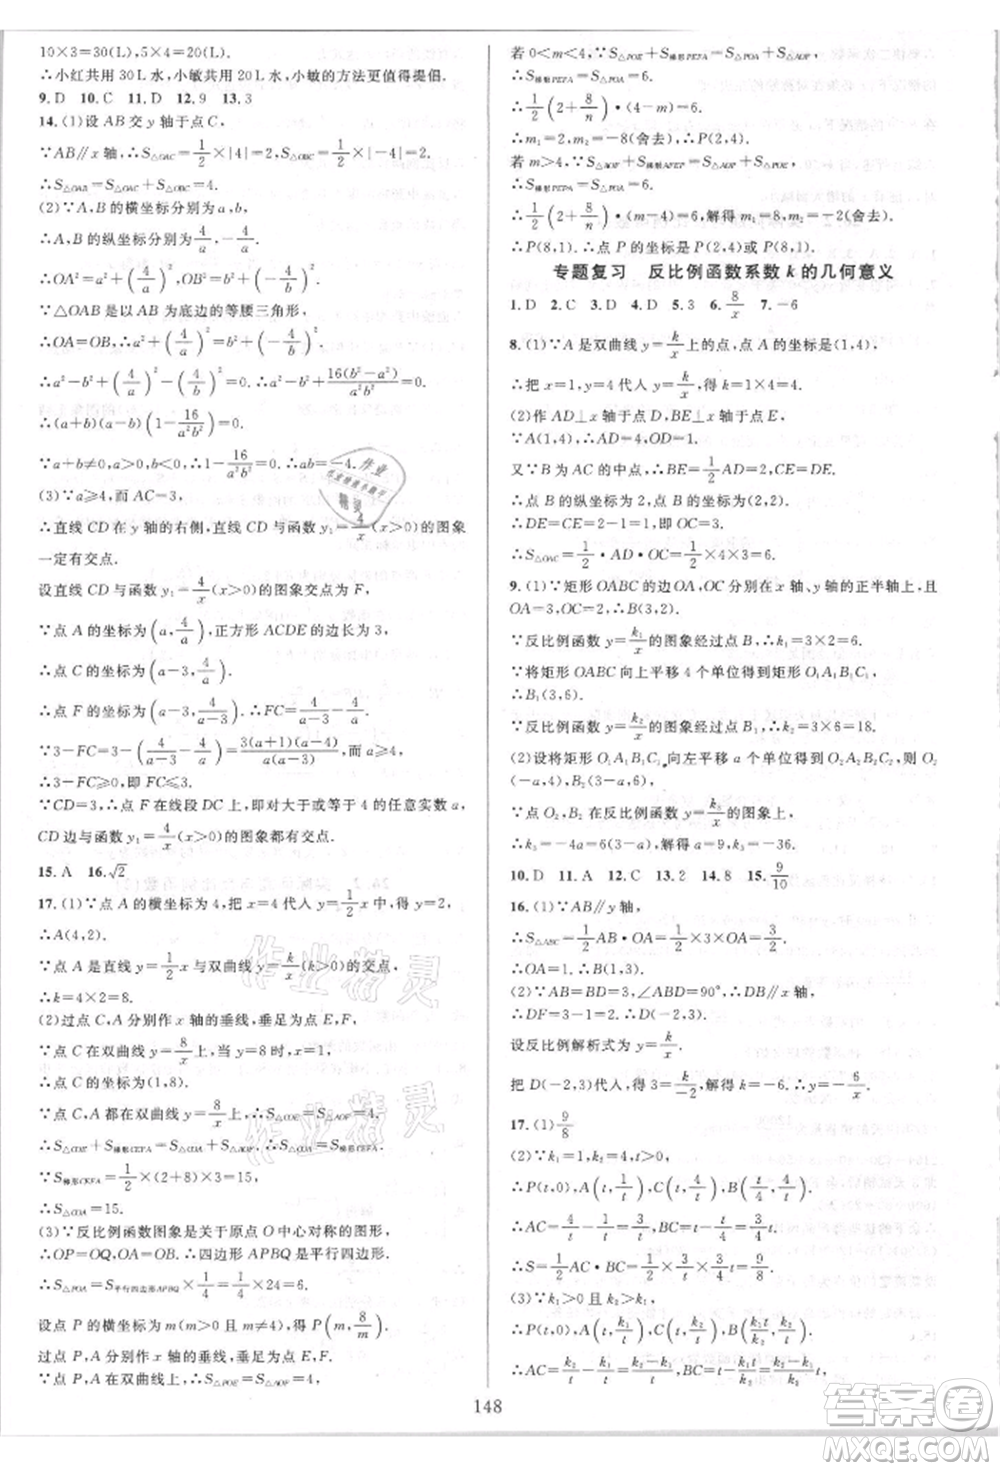 10×3=30(L),5×4=20(L).
∴小红共用30L水,小敏共用20L水,小敏的方法更值得提倡.
9.D 10.C 11.D 12.9 13.3
14.(1)设AB交y轴于点C,
∵AB∥x轴,∴S△OAC=1/2×|4|=2,S△OBC=1/2×|-4|=2.
∴S△OAB=S△OAC+S△OBC=4.
(2)∵A,B的横坐标分别为a,b,
∴A,B的纵坐标分别为4/a,-4/b.
∴OA²=a²+(4/a)²,OB²=b²+(-4/b)².
∵△OAB是以AB为底边的等腰三角形,
∴OA=OB,∴a²+(4/a)²=b²+(-4/b)².
∴a²-b²+(4/a)²-(4/b)²=0.∴a²-b²+16(b²-a²)/a²b²=0.
∴(a+b)(a-b)(1-16/a²b²)=0.
∵a+b≠0,a>0>b,∴1-16/a²b²=0.∴ab=-4.
(3)∵a≥4,而AC=3,
∴直线CD在y轴的右侧,直线CD与函数y₁=4/x(x>0)的图象
一定有交点.
设直线CD与函数y₁=4/x(x>0)的图象交点为F,
∵点A的坐标为(a,4/a),正方形ACDE的边长为3,
∴点C的坐标为(a-3,4/a).
∴点F的坐标为(a-3,4/(a-3)).∴FC=4/(a-3)-4/a.
∵3-FC=3-(4/(a-3)-4/a)=3(a+1)(a-4)/a(a-3)≥0,
∴3-FC≥0,即FC≤3.
∵CD=3,∴点F在线段DC上,即对大于或等于4的任意实数a,
CD边与函数y₁=4/x(x>0)的图象都有交点.
15.A 16.√2
17.(1)∵点A的横坐标为4,把x=4代入y=1/2x中,得y=2.
∴A(4,2).
∵点A是直线y=1/2x与双曲线y=k/x(k>0)的交点,
∴k=4×2=8.
(2)过点C,A分别作x轴的垂线,垂足为点E,F,
∵点C在双曲线y=8/x上,当y=8时,x=1.
∴点C的坐标为(1,8).
∵点C,A都在双曲线y=8/x上,∴S△COE=S△AOF=4.
∴S△COE+S梯形CEFA=S△COA+S△AOF.∴S△COA=S梯形CEFA.
∵S梯形CEFA=1/2×(2+8)×3=15,
∴S△COA=15.
(3)∵反比例函数图象是关于原点O中心对称的图形,
∴OP=OQ,OA=OB.∴四边形APBQ是平行四边形.
∴S△POA=S平行四边形APBQ×1/4=1/4×24=6.
设点P的横坐标为m(m>0且m≠4),得P(m,8/m).
过点P,A分别作x轴的垂线,垂足为点E,F,
∵点P,A在双曲线上,∴S△POE=S△AOF=4,
若0<m<4,∵S△POE+S梯形PEFA=S△POA+S△AOF,
∴S梯形PEFA=S△POA=6.
∴1/2(2+8/m)·(4-m)=6.
∴m₁=2,m₂=-8(舍去).∴P(2,4).
若m>4,∵S△AOF+S梯形AFEP=S△AOP+S△POE,
∴S梯形AFEP=S△POA=6.
∴1/2(2+8/m)·(m-4)=6,解得m₁=8,m₂=-2(舍去).
∴P(8,1).∴点P的坐标是P(2,4)或P(8,1).
专题复习 反比例函数系数k的几何意义
1.D 2.C 3.D 4.D 5.3 6.8/x 7.-6
8.(1)∵A是双曲线y=k/x上的点,点A的坐标是(1,4),
∴把x=1,y=4代入y=k/x,得k=1×4=4.
(2)作AD⊥x轴于点D,BE⊥x轴于点E,
∵A(1,4),∴AD=4,OD=1.
又∵B为AC的中点,∴BE=1/2AD=2,CE=DE.
∴点B的纵坐标为2,点B的坐标是(2,2).
∴DE=CE=2-1=1,即OC=3.
∴S△OAC=1/2·AD·OC=1/2×4×3=6.
9.(1)∵矩形OABC的边OA,OC分别在x轴、y轴的正半轴上,且
OA=3,OC=2,∴B(3,2).
∵反比例函数y=k₁/x的图象经过点B,∴k₁=3×2=6.
∵将矩形OABC向上平移4个单位得到矩形O₁A₁B₁C₁,
∴B₁(3,6).
∵反比例函数y=k₂/x的图象经过点B₁,∴k₂=3×6=18.
(2)设将矩形O₁A₁B₁C₁向左平移a个单位得到O₂A₂B₂C₂,则O₂
(-a,4),B₂(3-a,6),
∵点O₂,B₂在反比例函数y=k₃/x的图象上,
∴k₃=-4a=6(3-a),解得a=9,k₃=-36.
10.D 11.A 12.C 13.2 14.8 15.9/10
16.(1)∵AB∥y轴,
∴S△ABC=1/2AB·OA=1/2×3×OA=3/2.
∴OA=1.∴B(1,3).
(2)∵AB=CD=3,∠ABD=90°,∴D在x轴.
∴DF=3-1=2.∴D(-2,3).
设反比例解析式为y=k/x,
把D(-2,3)代入,得3=k/-2,解得k=-6,∴y=-6/x.
17.(1)9/8
(2)∵k₁=1,k₂=4,∴y₁=1/x,y₂=4/x.
∴P(t,0),A(t,1/t),C(t,4/t),B(t/4,4/t).
∴AC=4/t-1/t=3/t,BC=t-t/4=3/4t.
∴S=1/2AC·BC=1/2×3/t×3/4t=9/8.
(3)∵y₁=k₁/x,y₂=k₂/x,
∴P(t,0),A(t,k₁/t),C(t,k₂/t),B(k₁/k₂t,k₂/t).
∴AC=k₂/t-k₁/t=(k₂-k₁)/t,BC=t-k₁/k₂t=(k₂-k₁)/k₂t,
148
作业精灵
答案圈
MXQE.COM